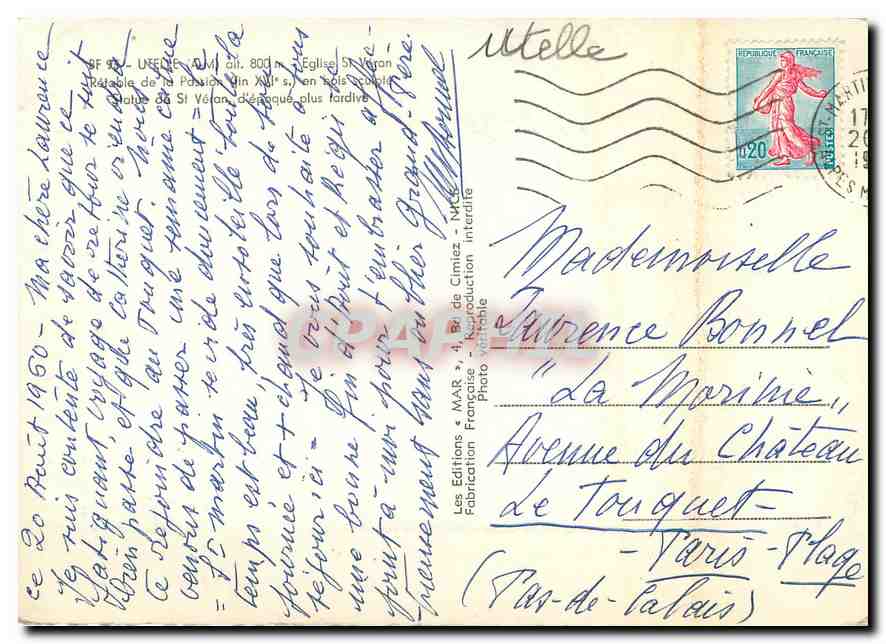 Utelle
BF 93 - UTELLE (A.M.) alt. 800 m. - Eglise St Véran
Rétable de la Passion (fin XVIe s.) en bois sculpté
Statue de St Véran, d'époque plus tardive
ce 20 Août 1960 - Ma chère Laurence
Je suis contente de savoir que ce
fatiguant voyage de retour se soit
bien passé, et que Catherine vienda
te rejoindre au Touquet. Nous
venons de passer une semaine calme
= St Martin se vide doucement = le
temps est beau, très ensoleillé toute la
journée et + chaud que lors de ton
séjour ici = Je vous souhaite à tous
une bonne fin d'Août et Régui se
joint à moi pour t'embrasser affec-
tueusement sans oublier Grand-Père.
Les Editions « MAR », 4, Bd de Cimiez - NICE
Fabrication Française - Reproduction interdite
Photo véritable
RÉPUBLIQUE FRANÇAISE
0,20
POSTES
ST-MARTIN
17
20
19
ALPES M
Mademoiselle
Laurence Bonnel
"La Morinie"
Avenue du Château
Le Touquet-
- Paris - Plage
(Pas-de-Calais)
CPARAMA